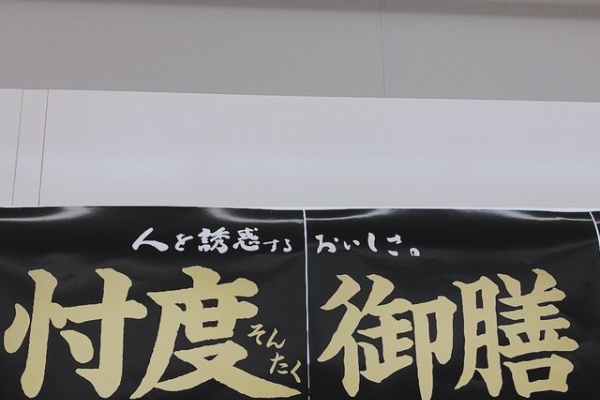 人を誘惑するおいしさ。
忖度御膳
そんたく